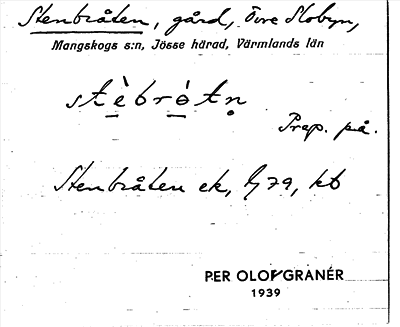 Stenbråten, gård, Övre Slobyn,
Mangskogs s:n, Jösse härad, Värmlands län
stèbròtn̥
Prep. på.
Stenbråten ek, G 79, kb
PER OLOF GRANÉR
1939